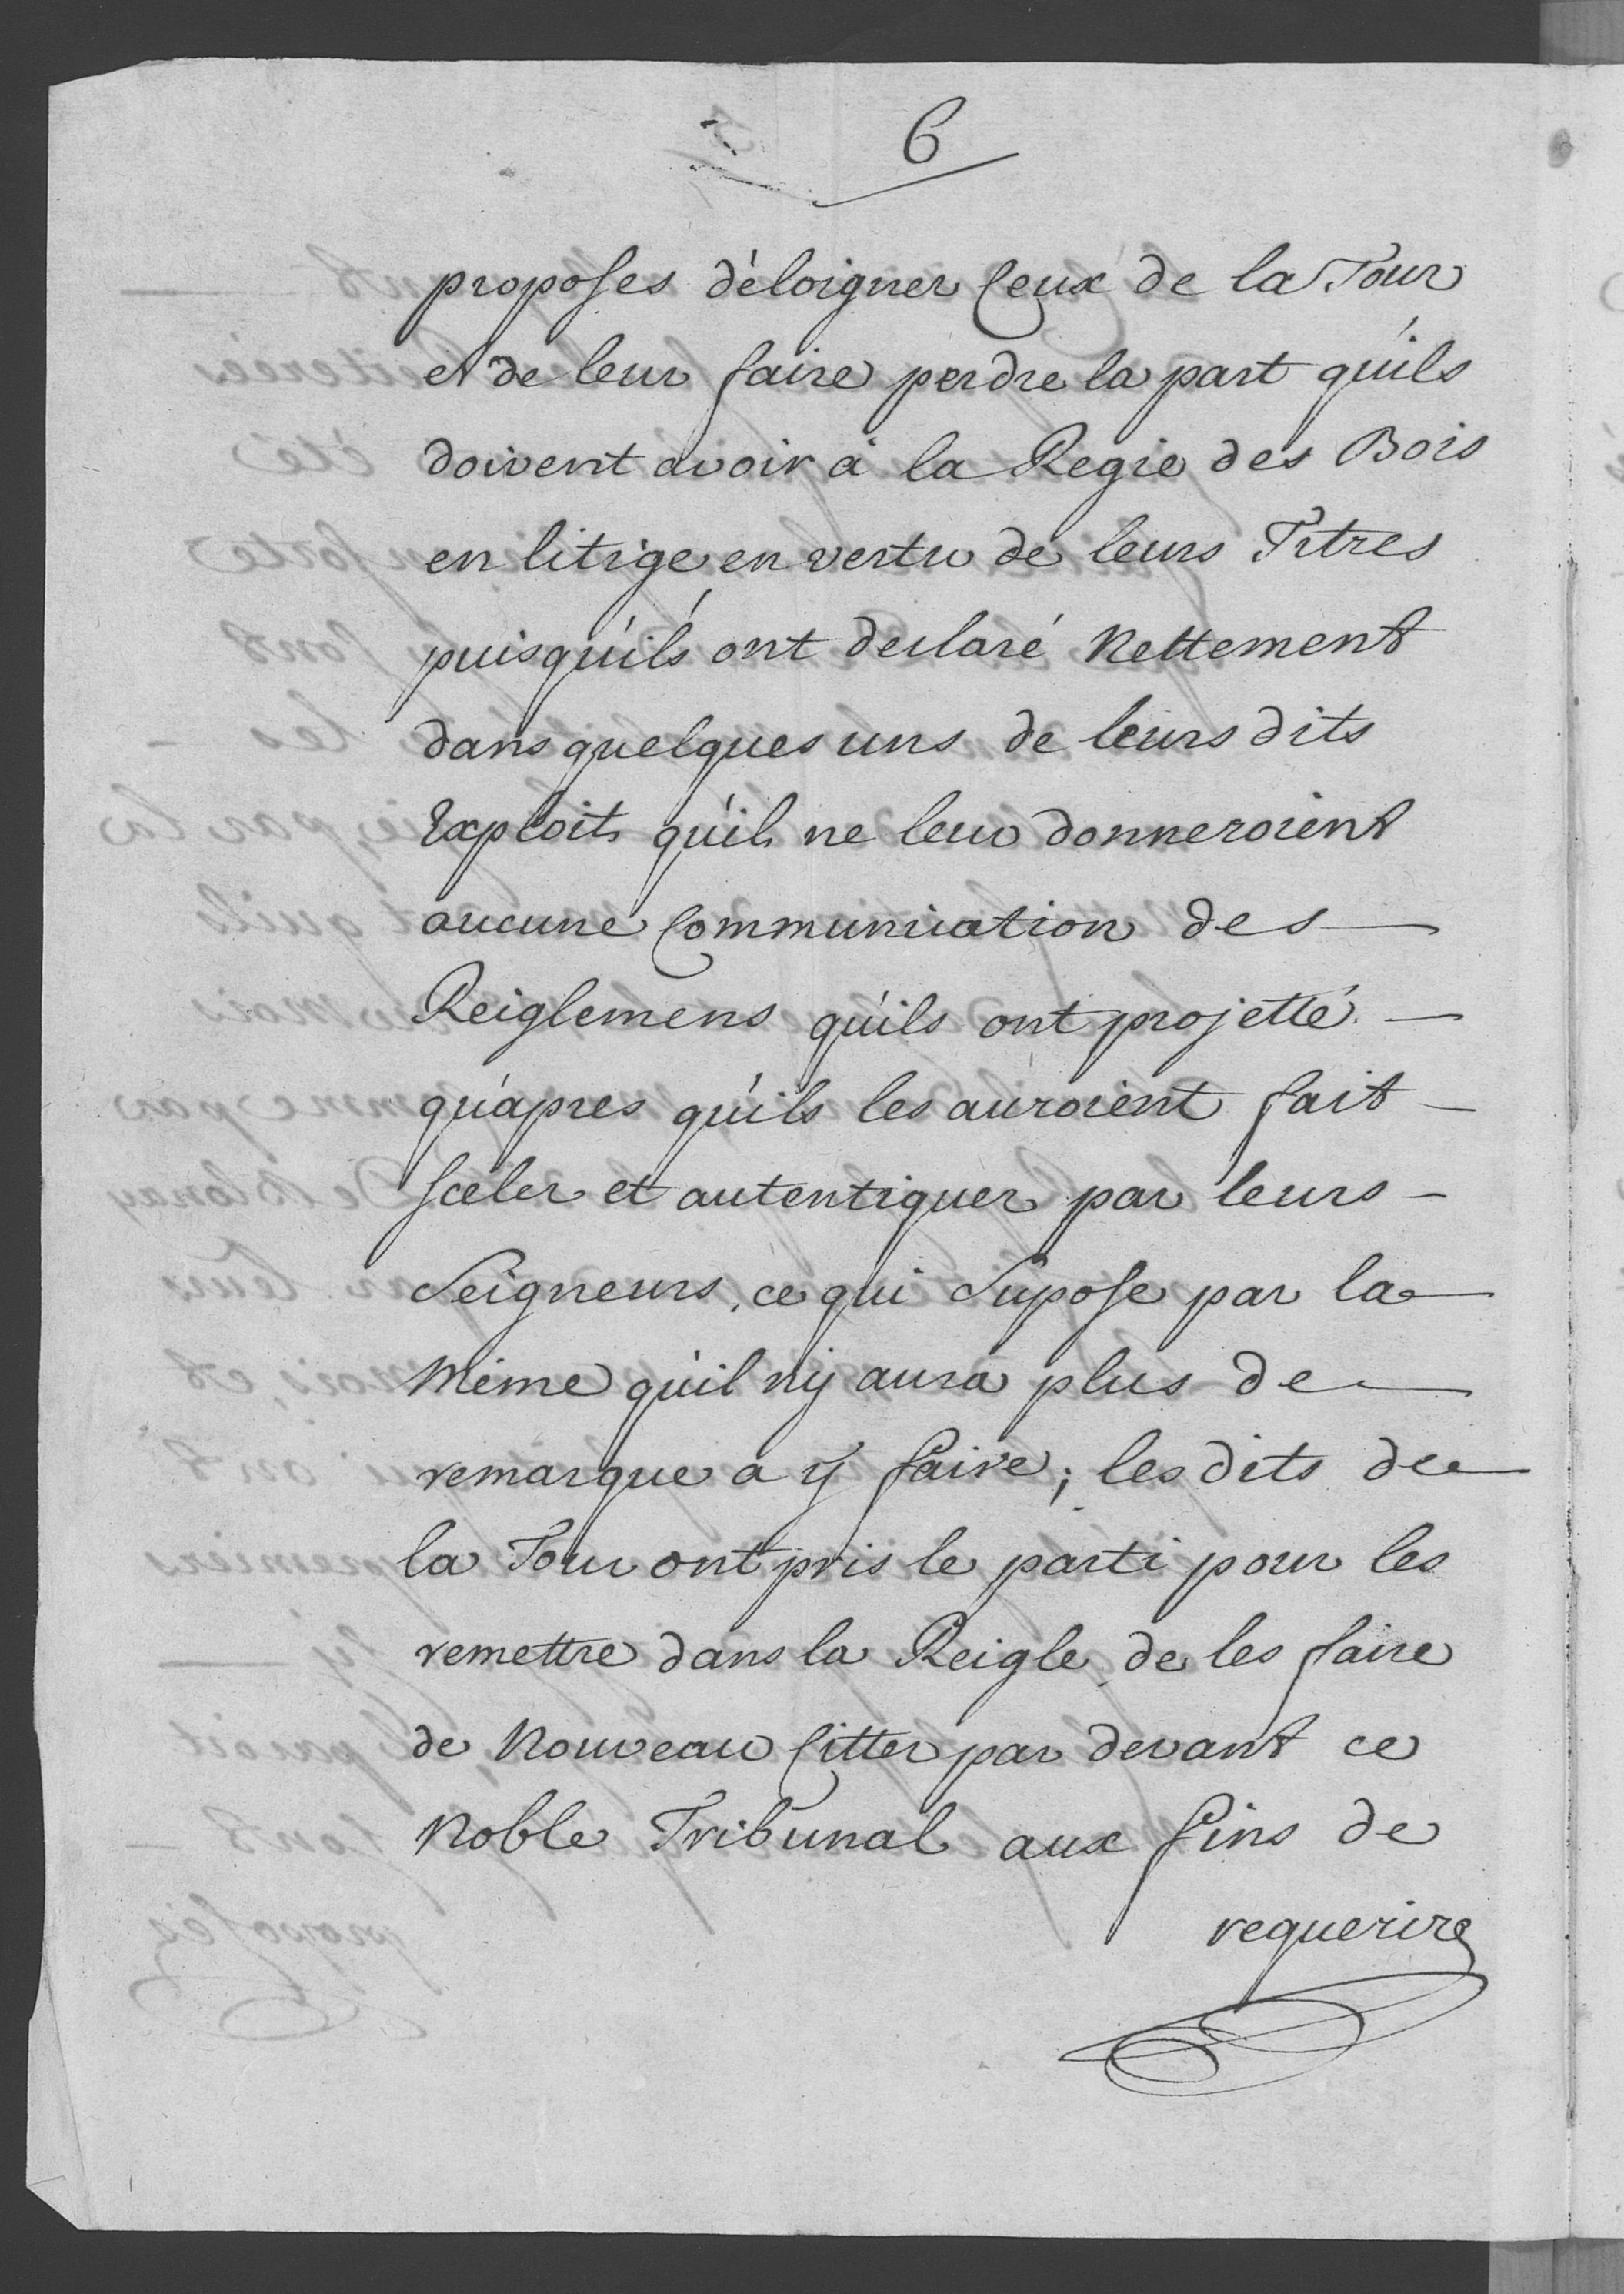 6
proposes d'éloigner Ceux de la Tour
et de leur faire perdre la part qu'ils
doivent avoir à la Regie des Bois
en litige en vertu de leurs Titres
puisqu'ils ont declaré Nettement
dans quelques uns de leurs dits
Exploits qu'ils ne leur donneroient
aucune Communication des
Reiglemens qu'ils ont projetté
qu'apres qu'ils les auroient fait
sceler et autentiquer par leurs
Seigneurs, ce qui Supose par la
Même qu'il n'ÿ aura plus de
remarque a ÿ faire; les dits de
la Tour ont pris le parti pour les
remettre dans la Reigle de les faire
de Nouveau Citter par devant ce
Noble Tribunal aux fins de
requerire